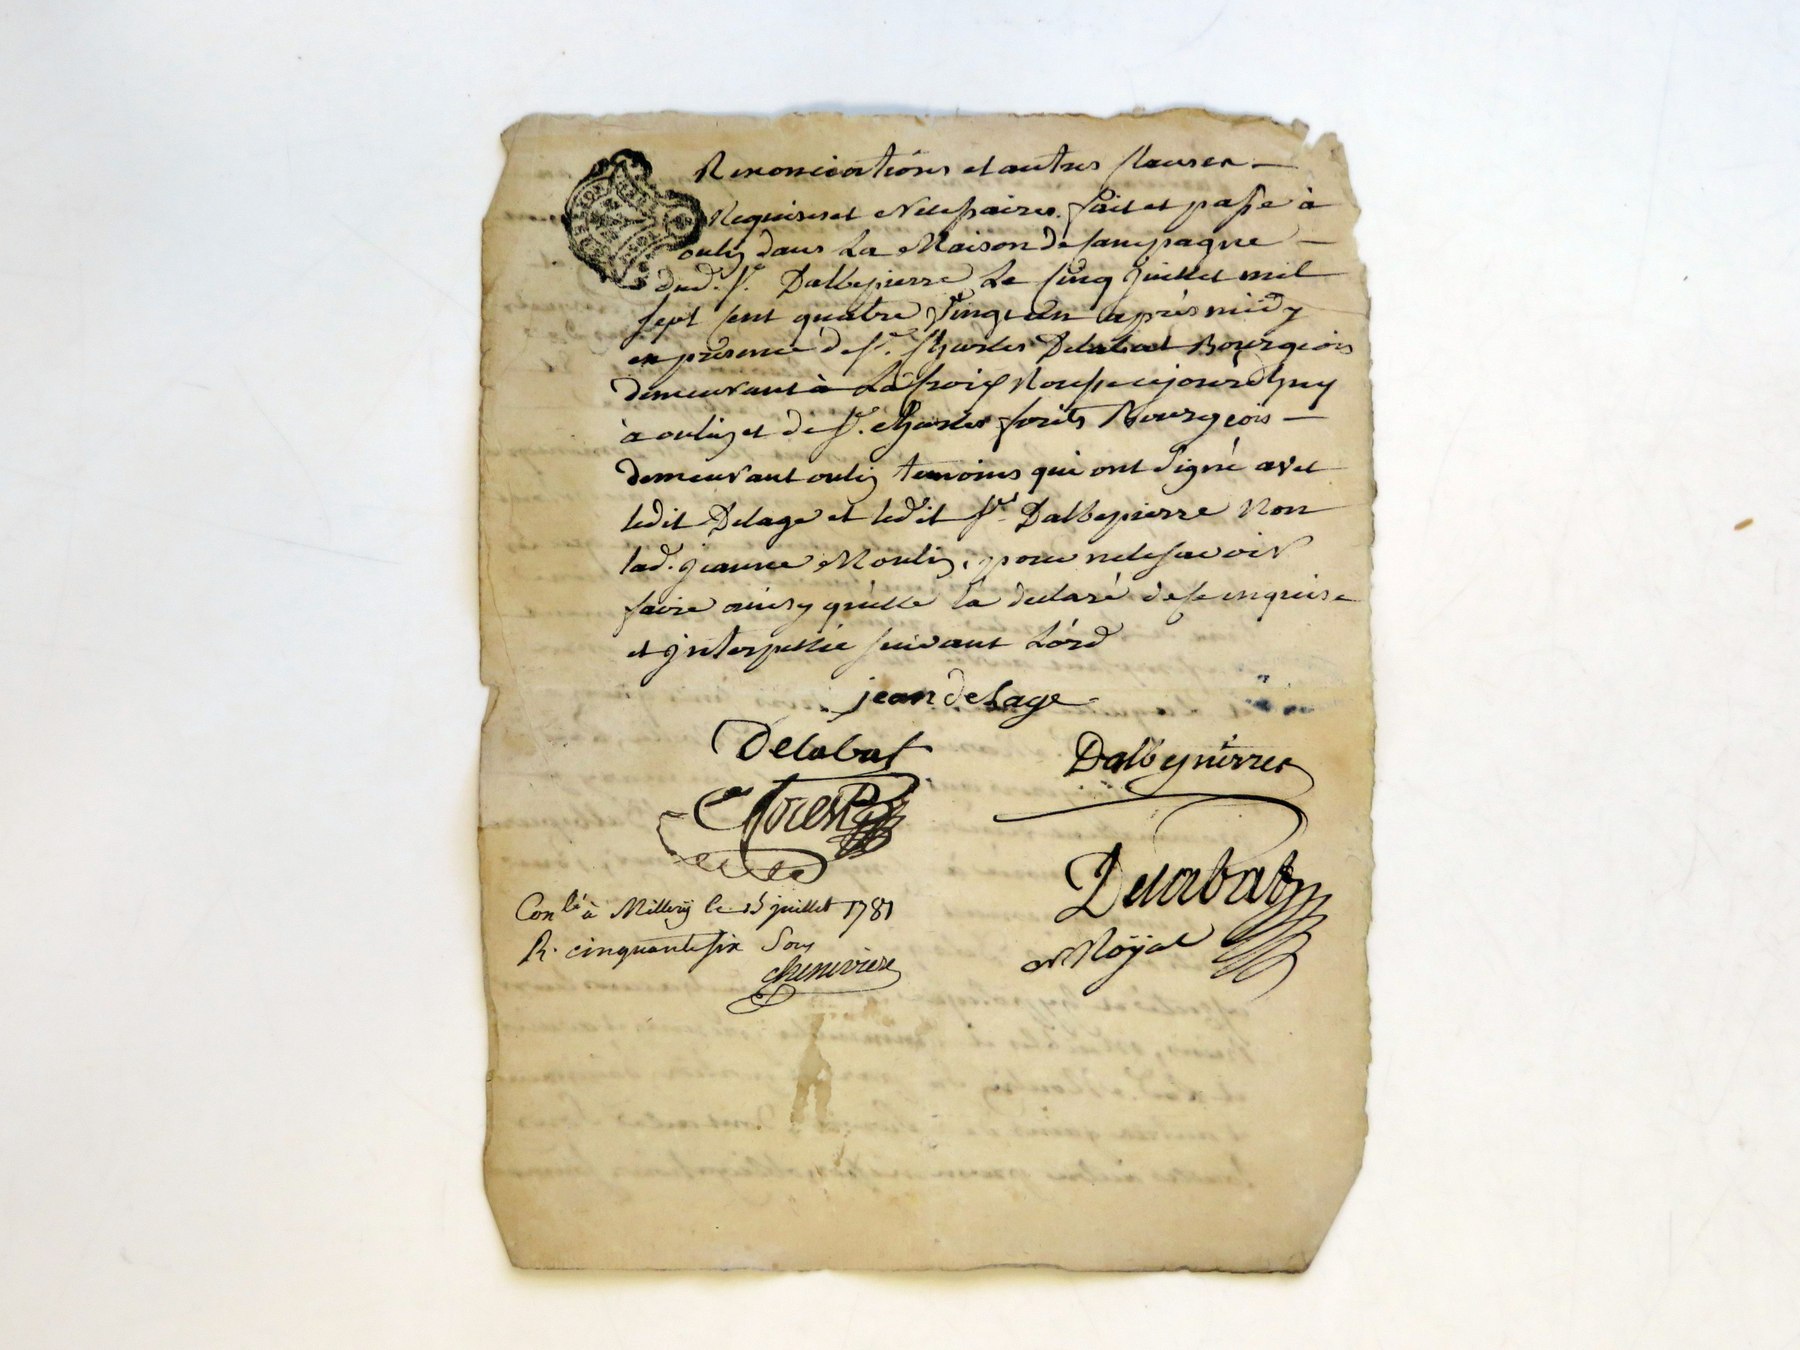 Renonciations et autres Clauses
Requises et Necessaires. fait et passé à
oulin dans La Maison de Campagne
dud. Sr. Dalbepierre Le Cinq Juillet mil
sept cent quatre Vingt un après midy
en présence de Sr. Charles Delabat Bourgeois
demeurant à La Croix Rousse cejourdhuy
à oulin et de Sr. Charles forets Bourgeois
demeurant oulin temoins qui ont Signé avec
ledit Delage et ledit Sr. Dalbepierre Non
lad. jeanne Moulin, pour ne le scavoir
faire ainsy qu'elle la declaré de ce enquise
et jnterpellée suivant L'ord
jean delage
Delabat
Dalbepierre
CForest
Delabat
Nre Royal
Conlé à Millery le 15 juillet 1781
R. cinquante six Sous
Chenevriere